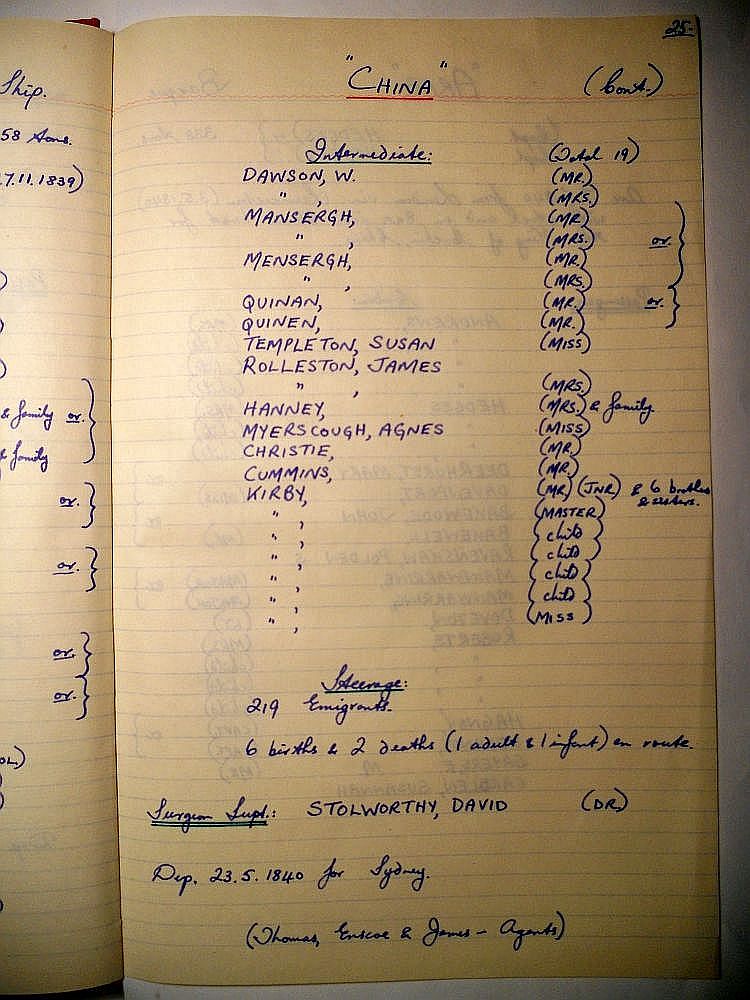 25.
Ship.
58 tons.
7.11.1839)
& family or.
& family
or.
or.
or.
or.
OL.)
"CHINA" (Cont.)
Intermediate: (Total 19)
DAWSON, W. (MR.)
" , (MRS.)
MANSERGH, (MR.)
" , (MRS.) or.
MENSERGH, (MR.)
" , (MRS.)
QUINAN, (MR.) or.
QUINEN, (MR.)
TEMPLETON, SUSAN (MISS)
ROLLESTON, JAMES
" , (MRS.)
HANNEY, (MRS.) & family.
MYERSCOUGH, AGNES (MISS)
CHRISTIE, (MR.)
CUMMINS, (MR.)
KIRBY, (MR.) (JNR.) & 6 brothers
& sisters.
" , (MASTER)
" , (child)
" , (child)
" , (child)
" , (child)
" , (MISS)
Steerage:
219 Emigrants.
6 births & 2 deaths (1 adult & 1 infant) en route.
Surgeon Supt.: STOLWORTHY, DAVID (DR.)
Dep. 23.5.1840 for Sydney.
(Thomas, Enscoe & James - Agents)